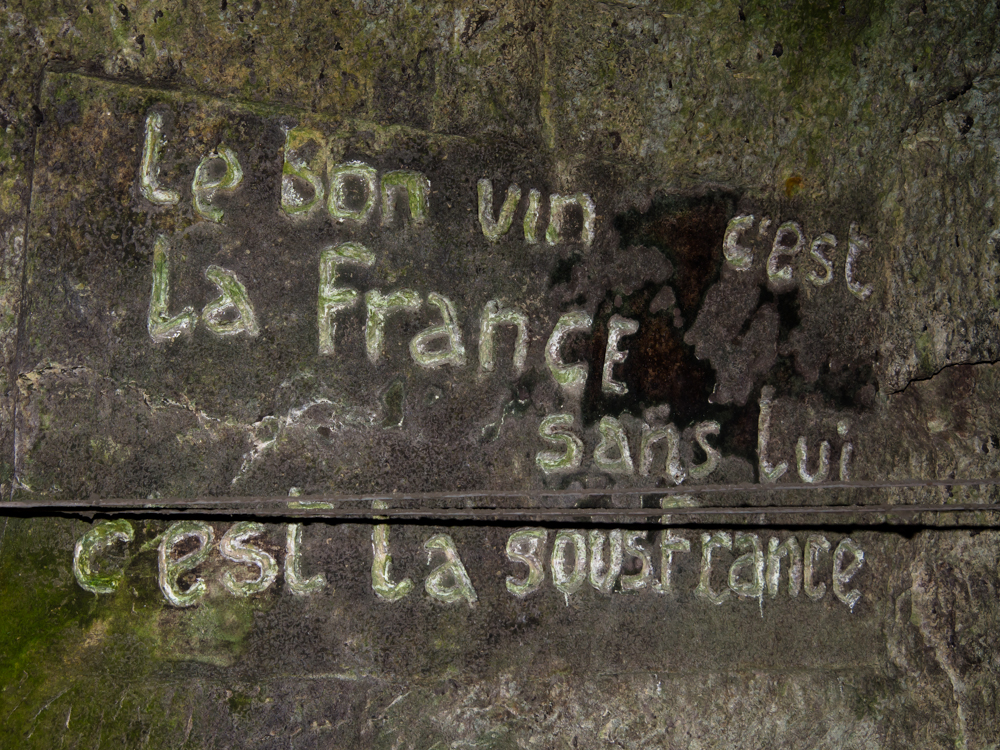 Le bon vin c'est
La FrancE
sans lui
c'est la sousfrance